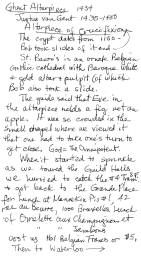 Ghent Altarpiece 1434
Justus van Gent 1435-1480
Altarpiece of Crucifixion
The crypt dates from 1150 -
Bob took slides of it and -
St. Bavon's is an ornate Belgian
Gothic cathedral with Baroque White
& gold altar & pulpit (of White
Bob also took a slide.
The guide said that Eve in
the altarpiece holds a fig not an
apple. It was so crowded in the
small chapel where we viewed it
that one had to take one's turn to
get close, God = The Omnipotent.
When it started to sprinkle
as we toured the Guild Halls
we hurried to catch the #4
& get back to the Grande Place
for lunch at
fee au beurre, 1000 Bruxelles, lunch
of Omelette aux Champignons et
" Jambons
cost us 160 Belgian Francs or $5,
Then to Waterloo